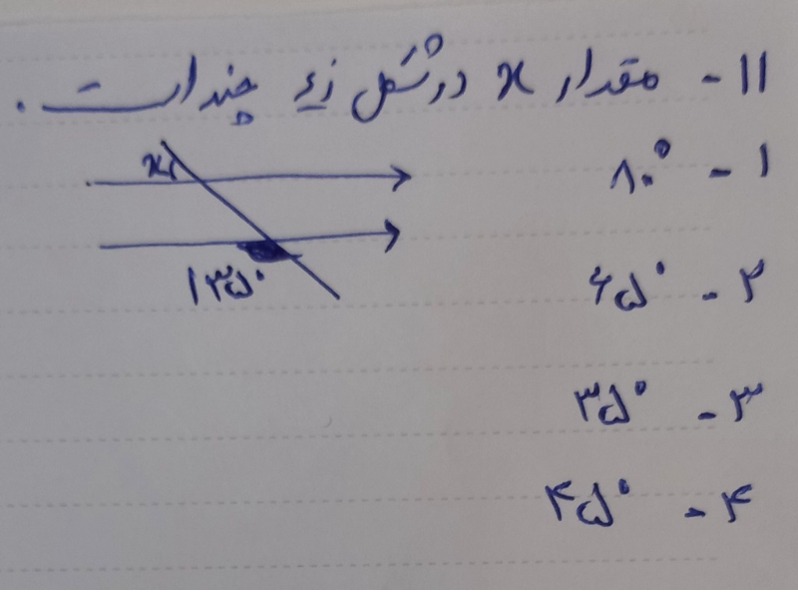 ۱۱- مقدار x در شکل زیر چند است.
۱- ۸۰°
x
۲- ۶۵°
۱۳۵°
۳- ۳۵°
۴- ۴۵°